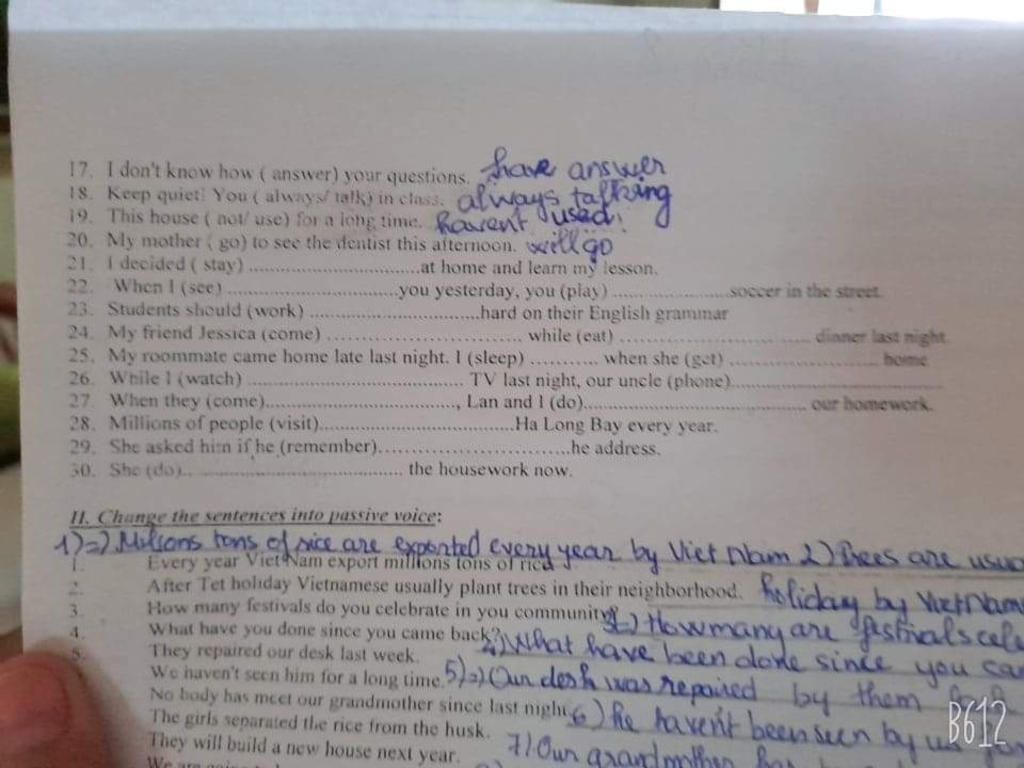 17. I don't know how ( answer) your questions. have answer
18. Keep quiet! You ( always/ talk) in class. always talking
19. This house ( not/ use) for a long time. havent used
20. My mother ( go) to see the dentist this afternoon. will go
21. I decided ( stay) ..............................at home and learn my lesson.
22. When I (see) ..............................you yesterday, you (play) ....................soccer in the street.
23. Students should (work) ..............................hard on their English grammar
24. My friend Jessica (come) .................................. while (eat) .................................. dinner last night.
25. My roommate came home late last night. I (sleep) ............ when she (get) .......................... home
26. While I (watch) ...................................... TV last night, our uncle (phone)......................................
27. When they (come)..................................., Lan and I (do)........................................ our homework.
28. Millions of people (visit)...................................Ha Long Bay every year.
29. She asked him if he (remember)..................................he address.
30. She (do)....................................... the housework now.
II. Change the sentences into passive voice:
1)=) Milions tons of rice are exported every year by Viet Nam 2) Trees are
1. Every year Viet Nam export millions tons of rice
2. After Tet holiday Vietnamese usually plant trees in their neighborhood. holiday by VietNam
3. How many festivals do you celebrate in you community? How many are festivals
4. What have you done since you came back? 4) What have been done since you
5. They repaired our desk last week. 5)=) Our desk was repaired by them
We haven't seen him for a long time.
No body has meet our grandmother since last night. 6) he haven't been seen by us
The girls separated the rice from the husk.
They will build a new house next year. 7) Our grandmother
We are
B612